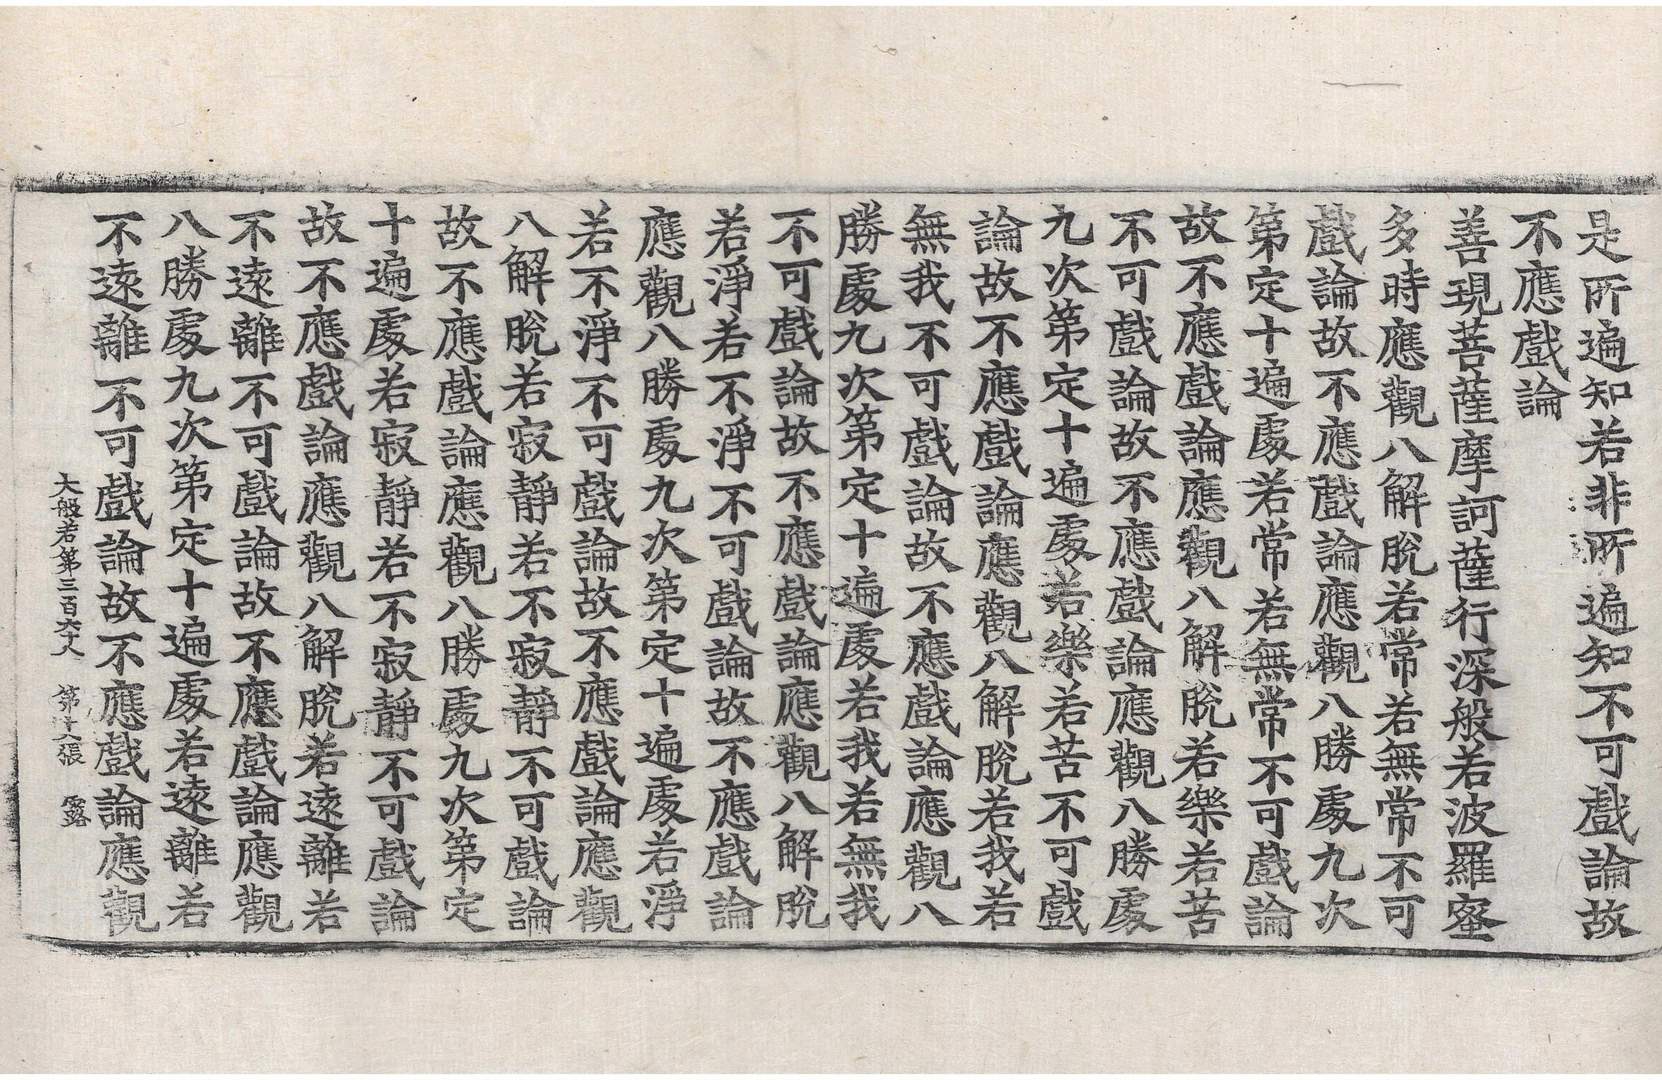 是所遍知若非所遍知不可戲論故
不應戲論
善現菩薩摩訶薩行深般若波羅蜜
多時應觀八解脫若常若無常不可
戲論故不應戲論應觀八勝處九次
第定十遍處若常若無常不可戲論
故不應戲論應觀八解脫若樂若苦
不可戲論故不應戲論應觀八勝處
九次第定十遍處若樂若苦不可戲
論故不應戲論應觀八解脫若我若
無我不可戲論故不應戲論應觀八
勝處九次第定十遍處若我若無我
不可戲論故不應戲論應觀八解脫
若淨若不淨不可戲論故不應戲論
應觀八勝處九次第定十遍處若淨
若不淨不可戲論故不應戲論應觀
八解脫若寂靜若不寂靜不可戲論
故不應戲論應觀八勝處九次第定
十遍處若寂靜若不寂靜不可戲論
故不應戲論應觀八解脫若遠離若
不遠離不可戲論故不應戲論應觀
八勝處九次第定十遍處若遠離若
不遠離不可戲論故不應戲論應觀
大般若第三百六十八 第 張 露